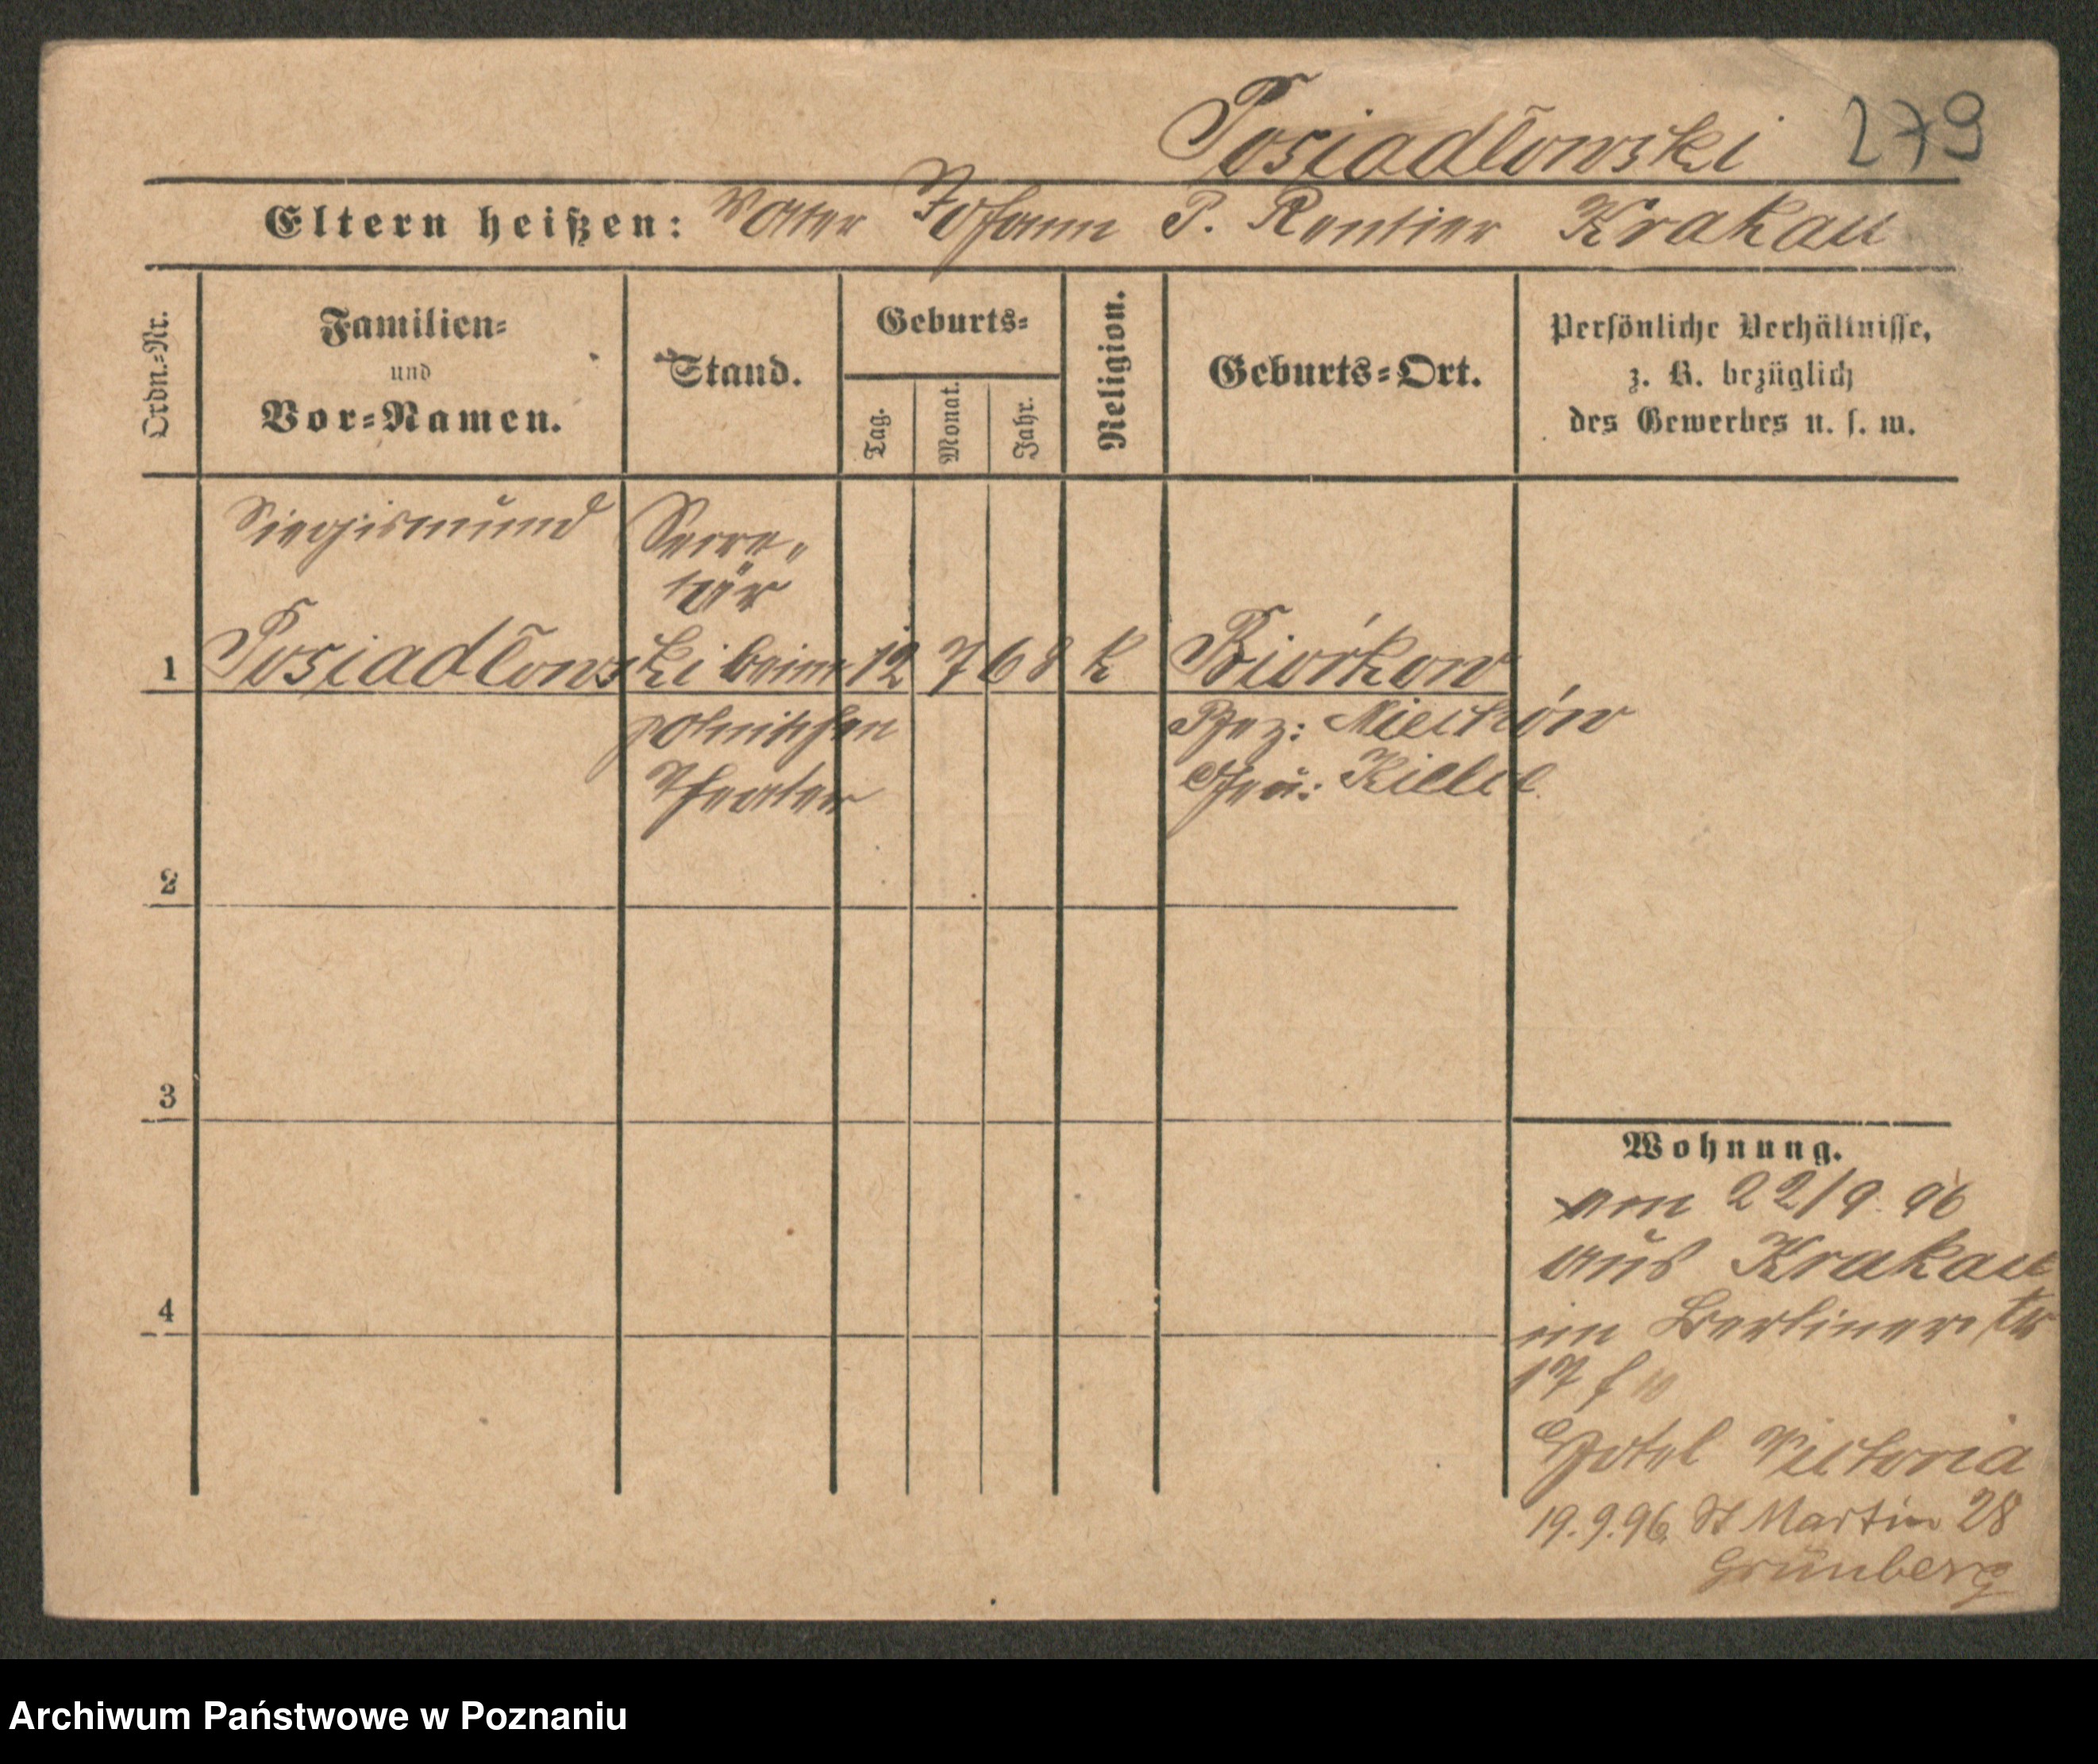 Posiadłowski 279
Eltern heißen: Vater Johann P. Rentier Krakau
Ordn.-Nr.
Familien-
und
Vor-Namen.
Stand.
Geburts-
Tag.
Monat.
Jahr.
Religion.
Geburts-Ort.
Persönliche Verhältnisse,
z. B. bezüglich
des Gewerbes u. s. w.
Siegismund
Secre-
tär
1 Posiadłowski beim 12 7 68 k Biórkow
polnischen
Theater
Bez: Miechów
Gou: Kielce
2
3
4
Wohnung.
am 22/9. 96
aus Krakau
in Berlinerstr
17
Hotel Victoria
19.9.96. St Martin 28
Grünberg
Archiwum Państwowe w Poznaniu